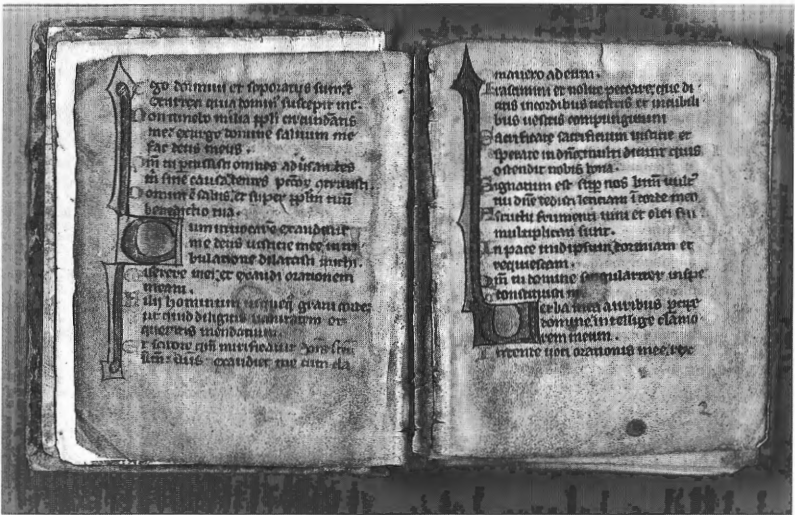 Ego dormivi et soporatus sum et
exurrexi quia dominus suscepit me.
Non timebo milia ppli circundantis
me: exurge domine salvum me
fac deus meus.
Qm tu percussisti omnes adversantes
m sine causa: dentes pctor
Domini e salus: et super pplm tuum
benedictio tua.
Cum invocare exaudivit
me deus iusticie mee: in tri
bulatione dilatasti michi.
Miserere mei: et exaudi orationem
meam.
Filii hominum usqueq gravi corde:
ut quid diligitis vanitatem et
queritis mendatium.
Et scitote qm mirificavit dns scm
suum: dns exaudiet me cum cla
mavero ad eum.
Irascimini et nolite peccare: que di
citis in cordibus vestris et in cubili
bus vestris compungimini
Sacrificate sacrificium iusticie et
sperate in dno: multi dicunt quis
ostendit nobis bona.
Signatum est sup nos lumen vult
tui dne dedisti leticiam i corde meo
A fructu frumenti vini et olei sui
multiplicati sunt.
In pace in idipsum dormiam et
requiescam.
Qm tu domine singulariter in spe
constituisti me
Verba mea auribus pcipe
domine: intellige clamo
rem meum.
Intende voci orationis mee: rex